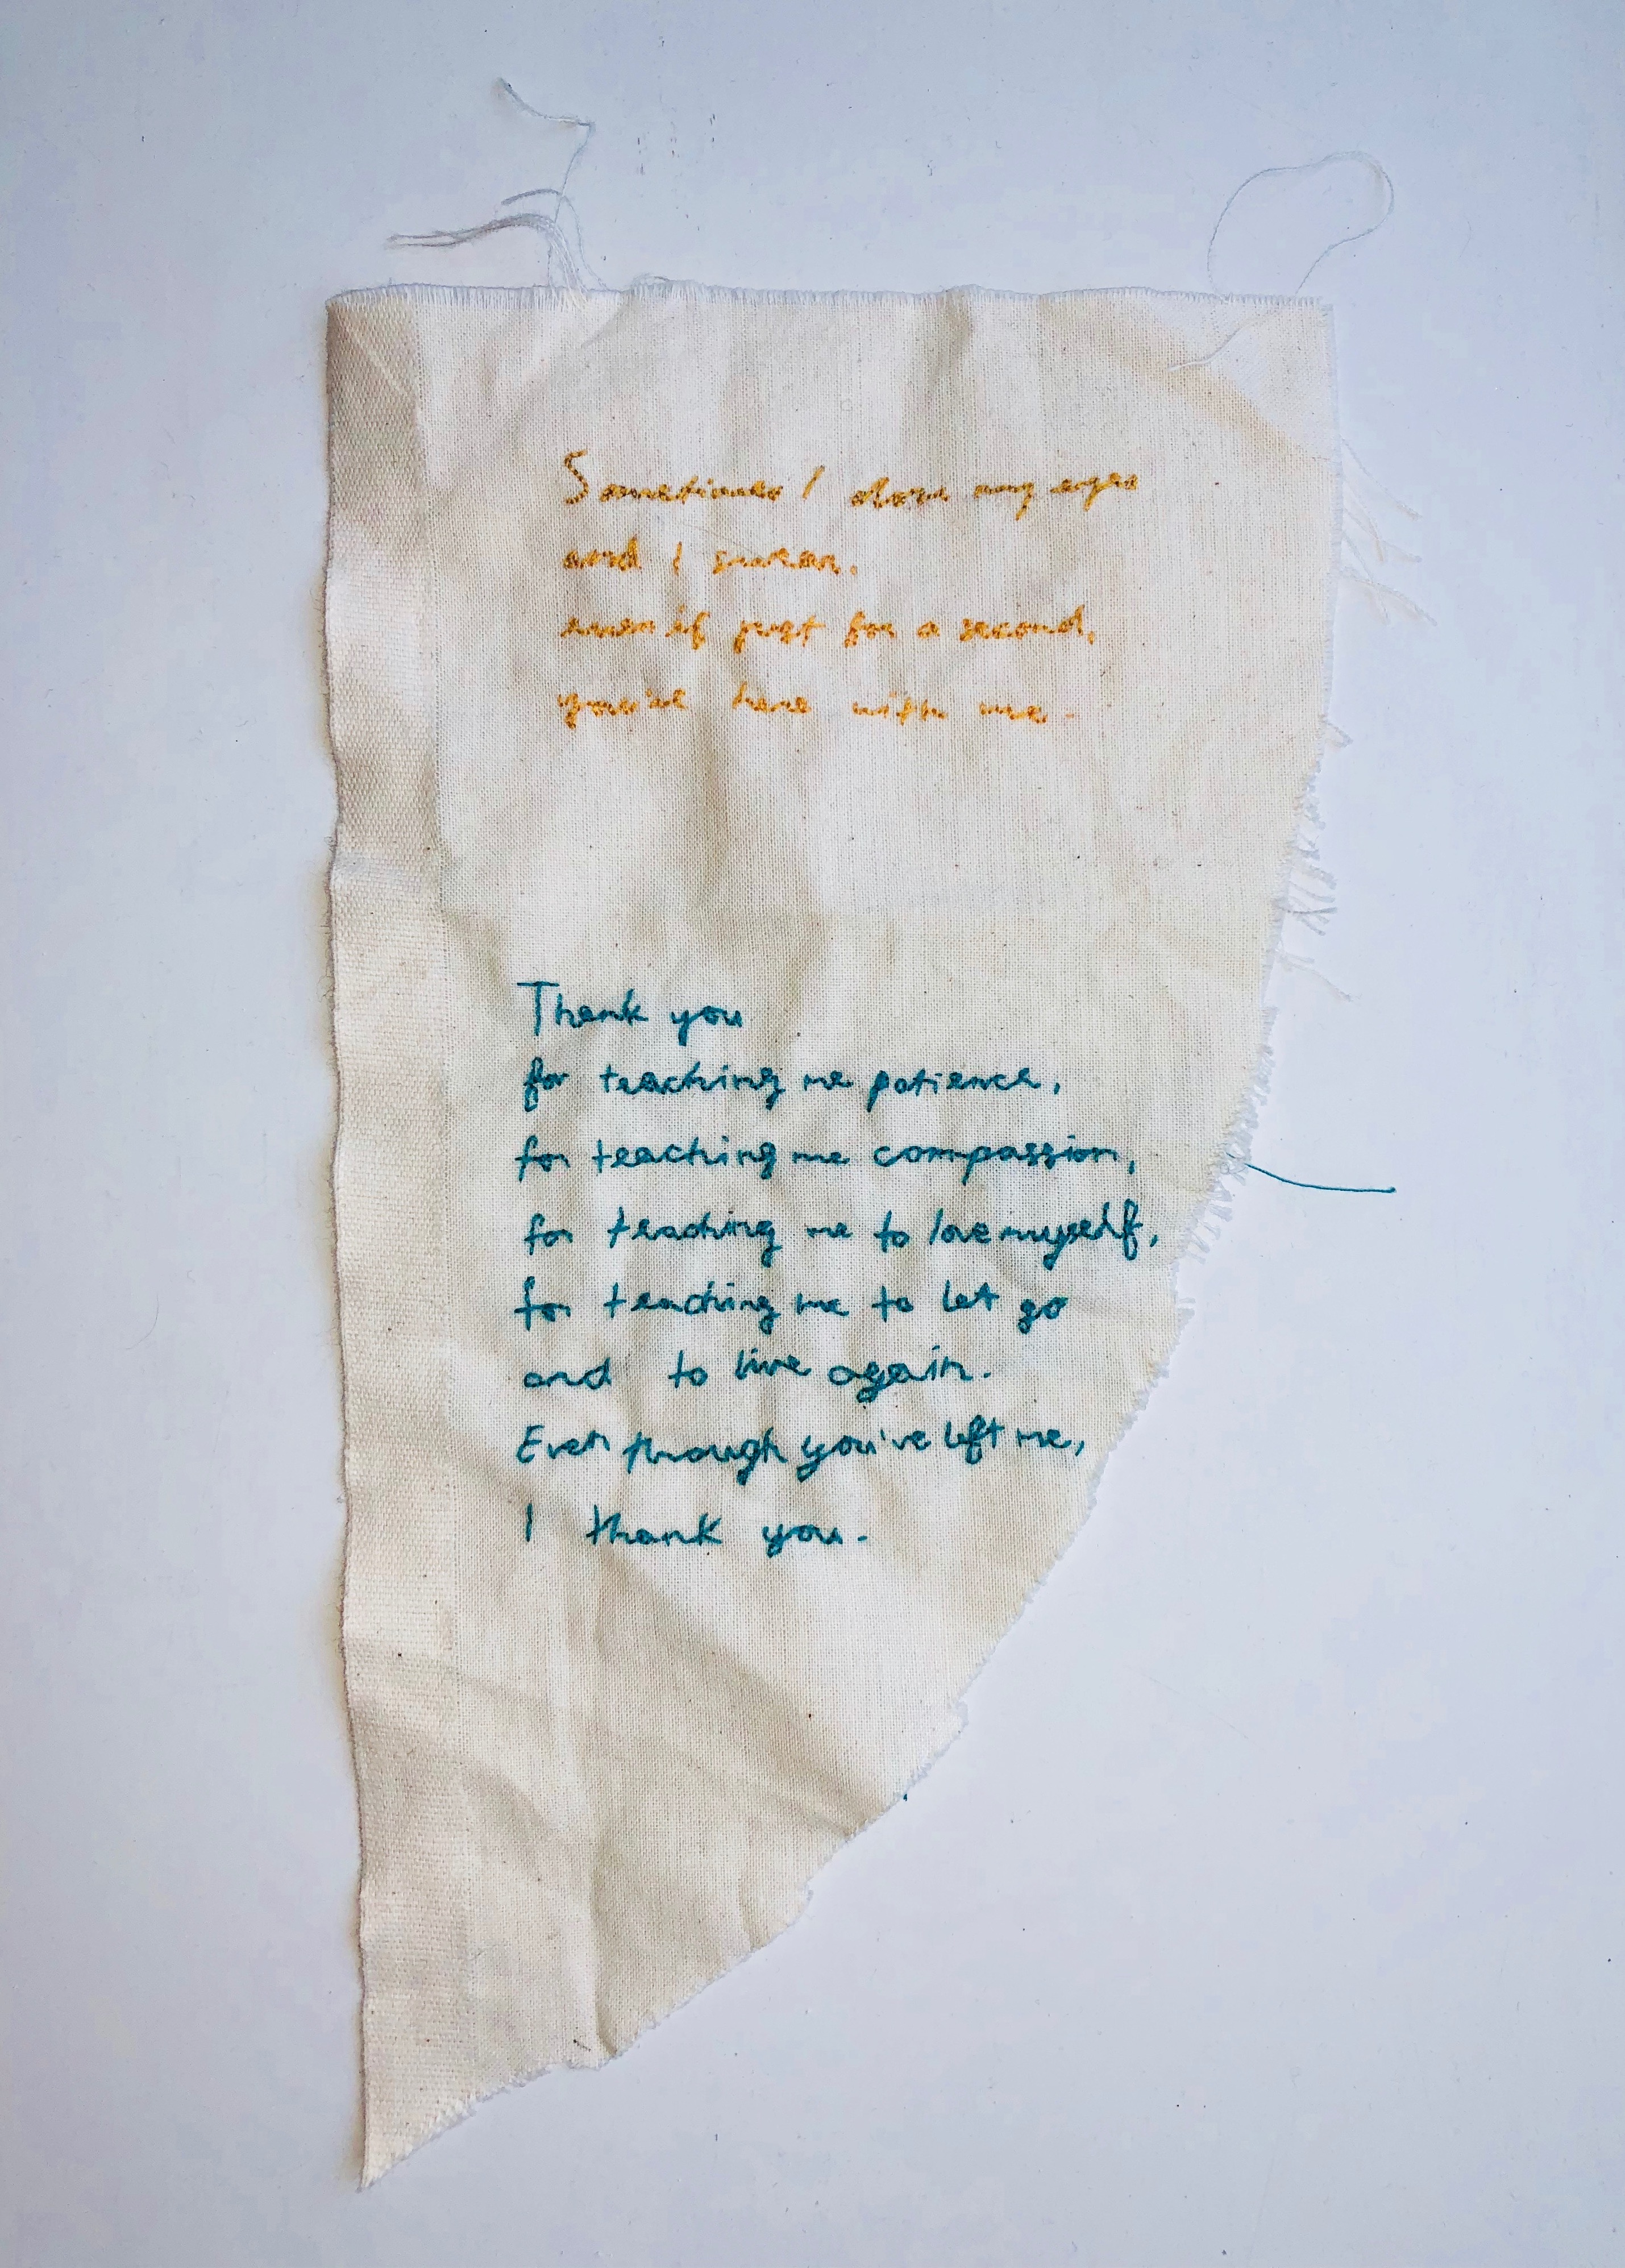 Sometimes I close my eyes
and I swear,
even if just for a second,
you're here with me.
Thank you
for teaching me patience,
for teaching me compassion,
for teaching me to love myself,
for teaching me to let go
and to live again.
Even though you've left me,
I thank you.